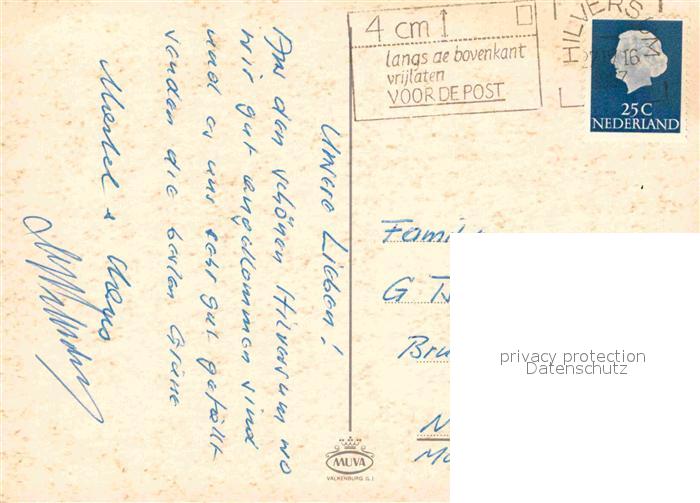 4 cm
langs de bovenkant
vrijlaten
VOOR DE POST
HILVERSUM
16
25 C
NEDERLAND
Unsere Lieben!
Aus den schönen Hilversum wo
wir gut angekommen sind
und es uns sehr gut gefällt
senden die besten Grüsse
&
Famil
G
Bru
N
privacy protection
Datenschutz
MUVA
VALKENBURG (L.)